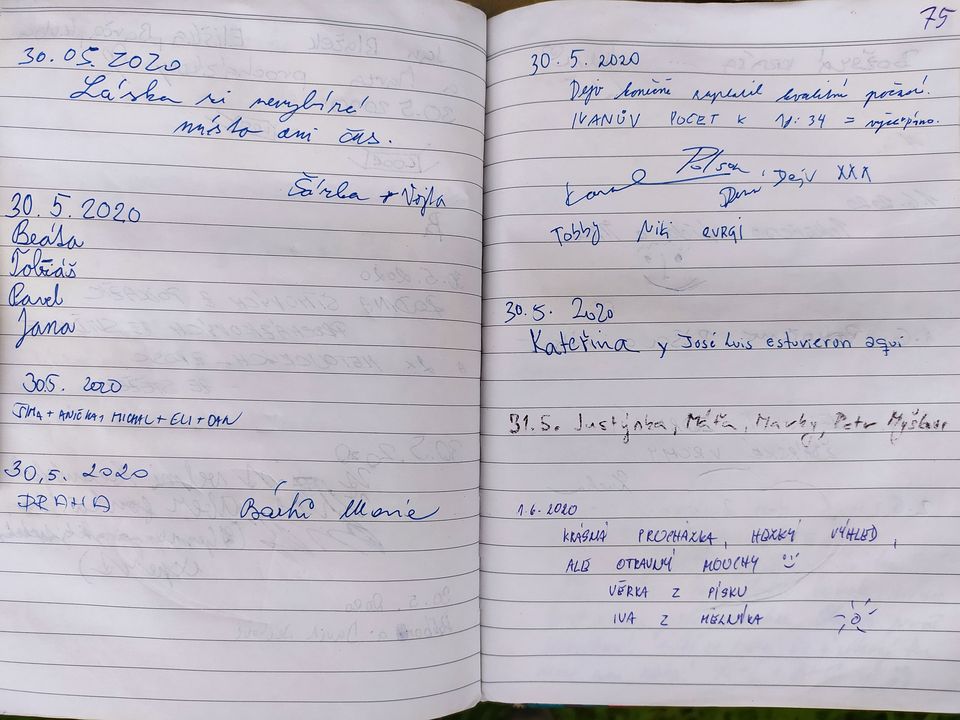 30.05.2020
Láska si nevybírá
místo ani čas.
Šárka + Vojta
30.5.2020
Beáta
Tobiáš
Pavel
Jana
30.5. 2020
ŠIMA + ANIČKA + MICHAL + ELI + DAN
30.5. 2020
PRAHA Marie
75
30.5.2020
Dejv konečně naplnil kvalitní počasí.
IVANŮV POČET K 1.: 34 = vyčerpáno.
Karel Dejv XXX
Tobby Niki
30.5. 2020
Kateřina y José Luis estuvieron aquí
31.5. Justýnka, Máťa, Mavky, Petr Myšlivec
1.6.2020
KRÁSNÁ PROCHÁZKA, HEZKÝ VÝHLED,
ALE OTRAVNÝ MOUCHY
VĚRKA Z PÍSKU
IVA Z MĚLNÍKA